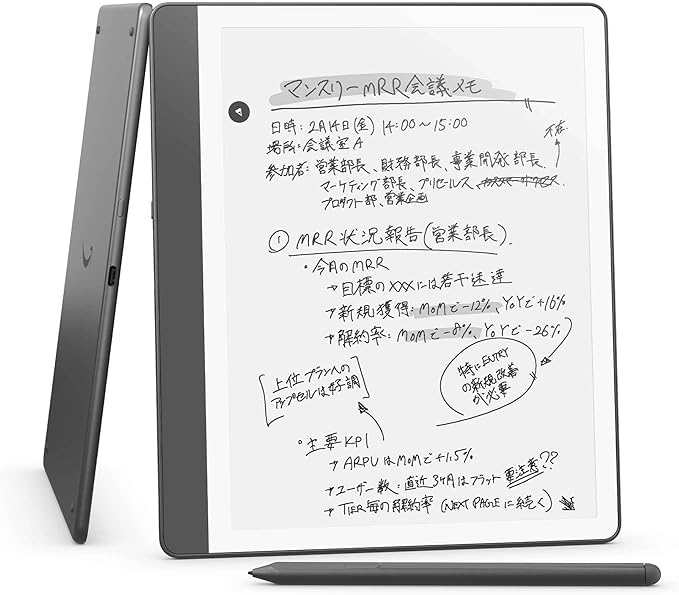 マンスリーMRR会議メモ
日時：2月14日(金) 14:00〜15:00
場所：会議室A
不在
参加者：営業部長、財務部長、事業開発部長、
マーケティング部長、プリセールス、カスタマーサクセス、
プロダクト部、営業企画
① MRR状況報告(営業部長)
・今月のMRR
→目標のXXXには若干未達
→新規獲得：MoMで-12%、YoYで+16%
→解約率：MoMで-8%、YoYで-26%
特にENTRY
の新規改善
が必要
[上位プランへの
アップセルは好調]
・主要KPI
→ARPUはMoMで+1.5%
→ユーザー数：直近3ヶ月はフラット 要注意??
→TIER毎の解約率 (NEXT PAGEに続く)